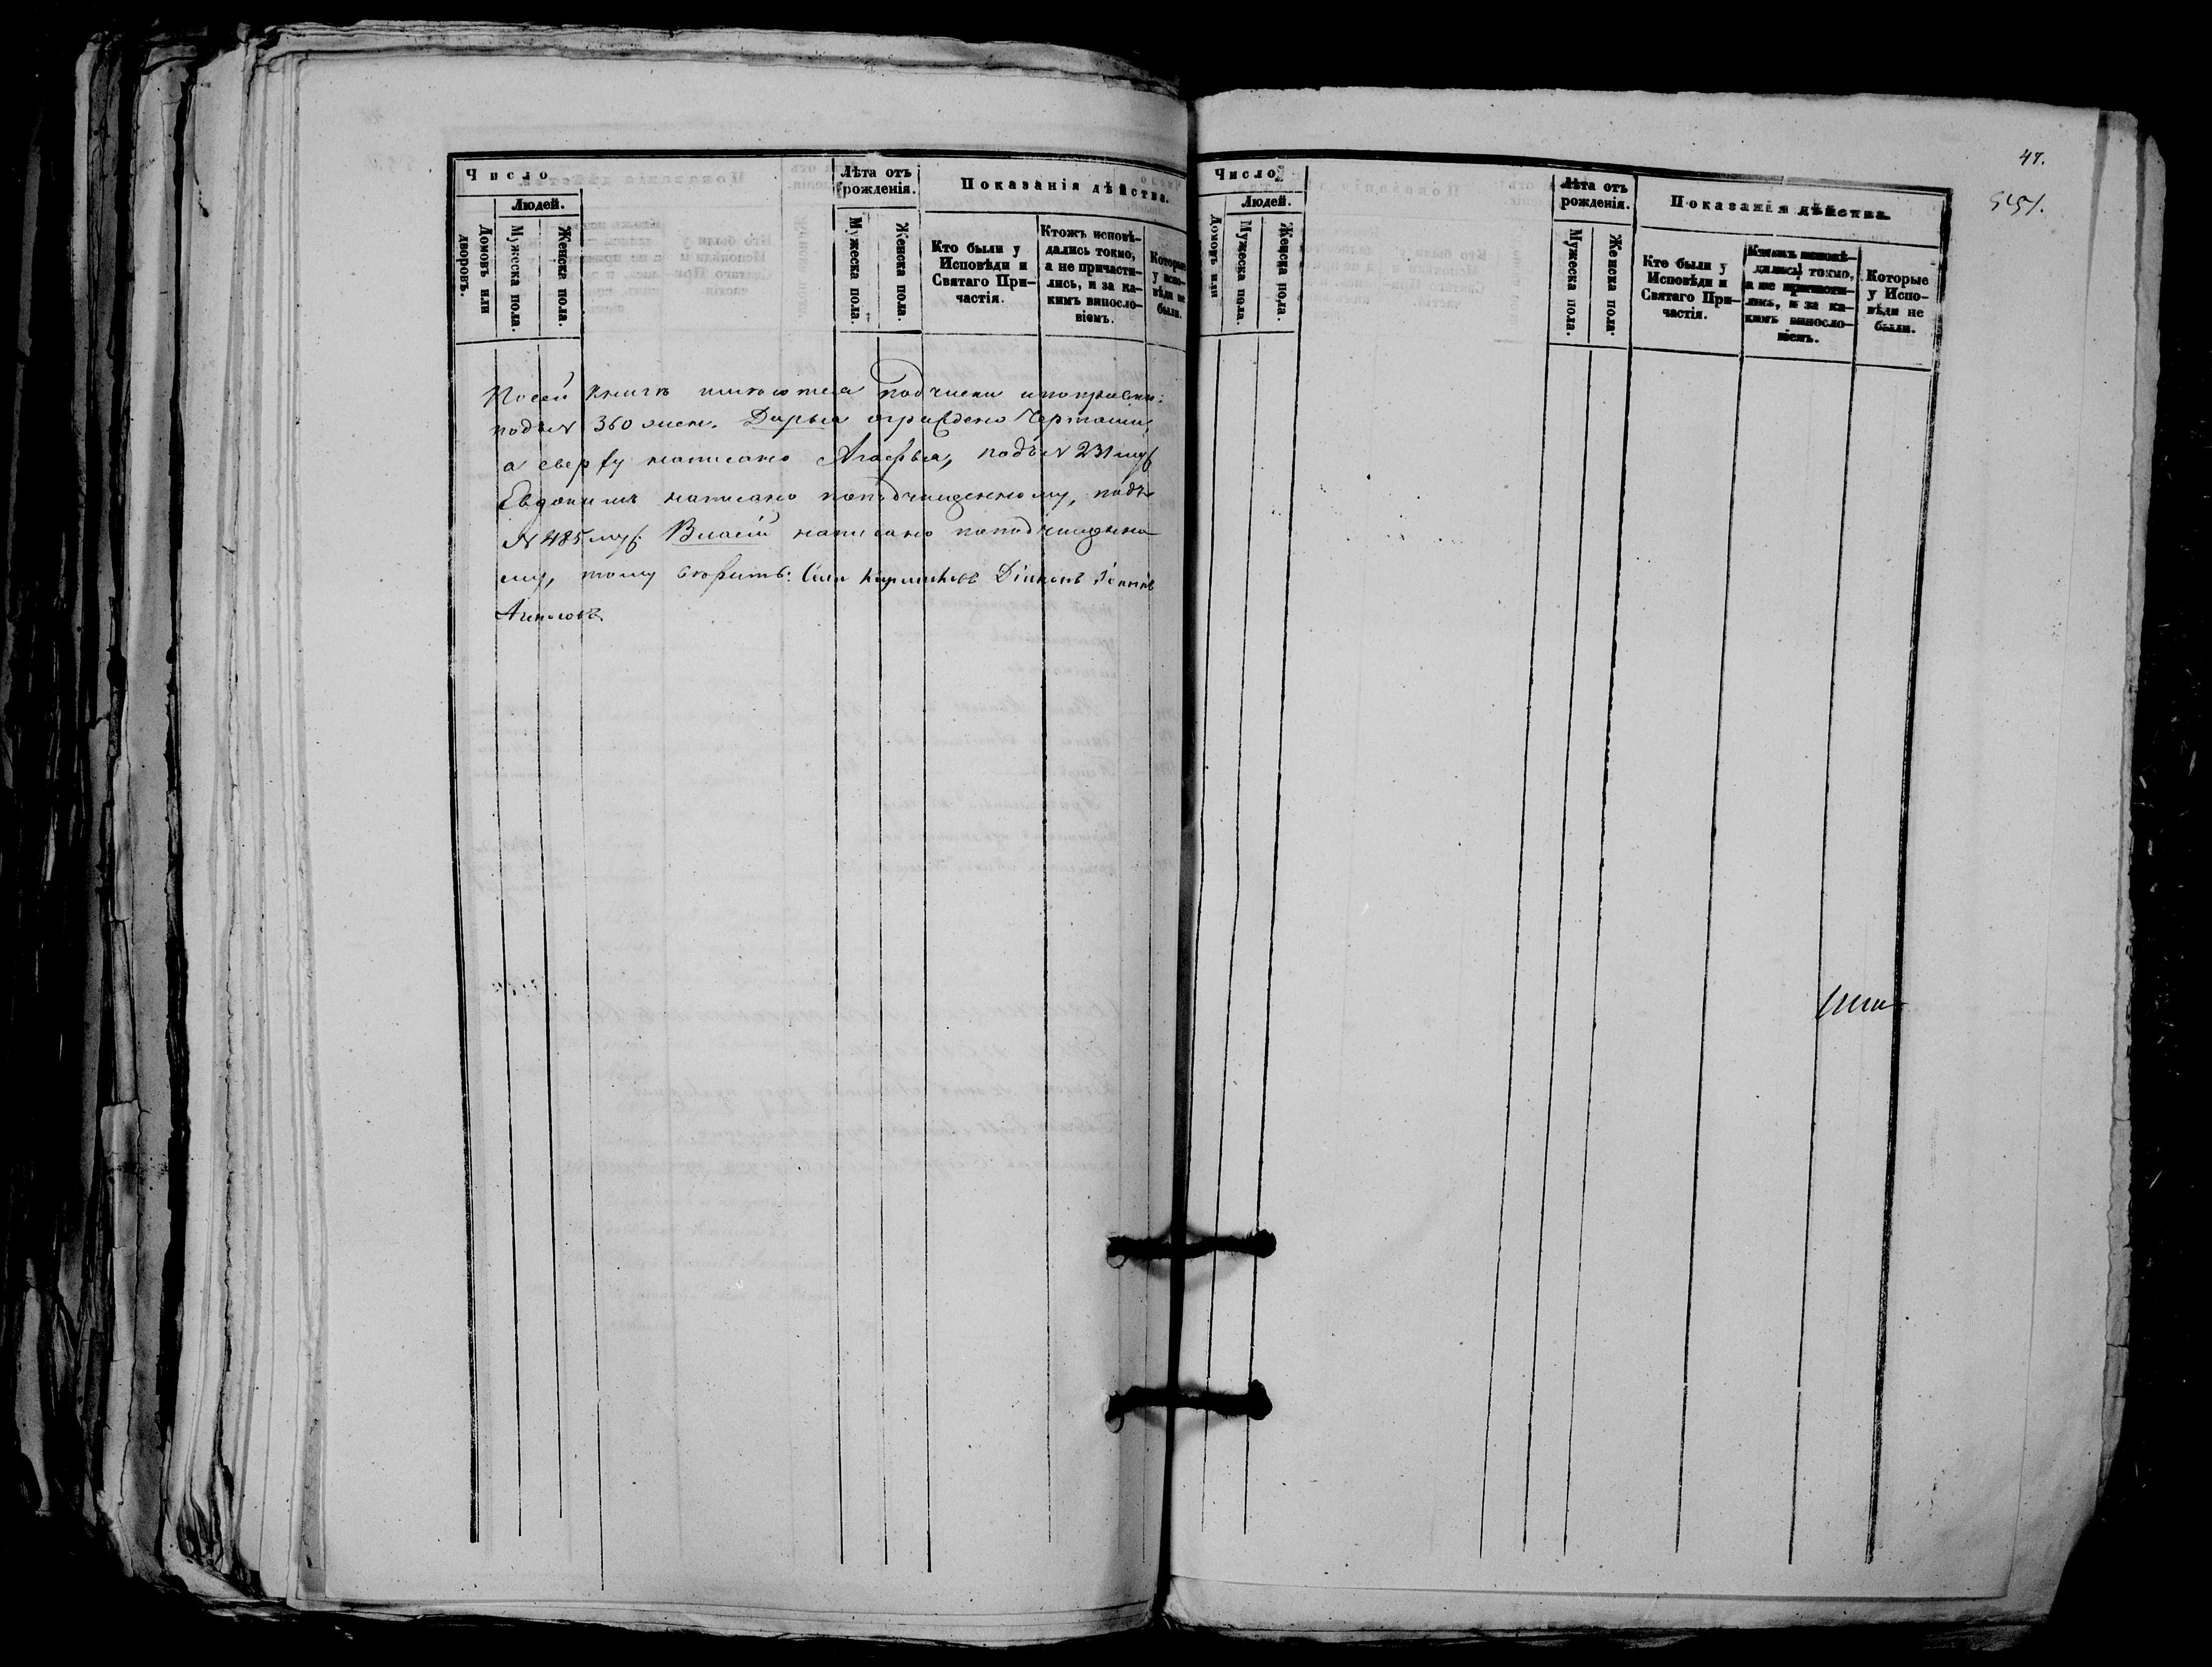 Число
Людей.
Домовъ или дворовъ.
Мужеска пола.
Женска пола.
Лѣта отъ рожденія.
Мужеска пола.
Женска пола.
Показанія дѣйства.
Кто были у
Исповѣди и
Святаго При-
частія.
Ктожъ исповѣ-
дались токмо,
а не причасти-
лись, и за ка-
кимъ винносло-
віемъ.
Которые
у испо-
вѣди не
были.
По сей книгѣ имѣются подчиски и поправки:
подъ № 360 жен. Дарья ограждено чертами,
а сверху написано Агафья, подъ № 231 муж.
Евдокимъ написано по подчищенному, подъ
№ 485 муж. Власій написано по подчищенно
му, тому вѣрить: Діаконъ Іоаннъ
Число
Людей.
Домовъ или
Мужеска пола.
Женска пола.
Лѣта отъ
рожденія.
Мужеска пола.
Женска пола.
Показанія дѣйства.
Кто были у
Исповѣди и
Святаго При-
частія.
Ктожъ исповѣ-
дались токмо,
а не причасти-
лись, и за ка-
кимъ винносло-
віемъ.
Которые
у Испо-
вѣди не
были.
47.